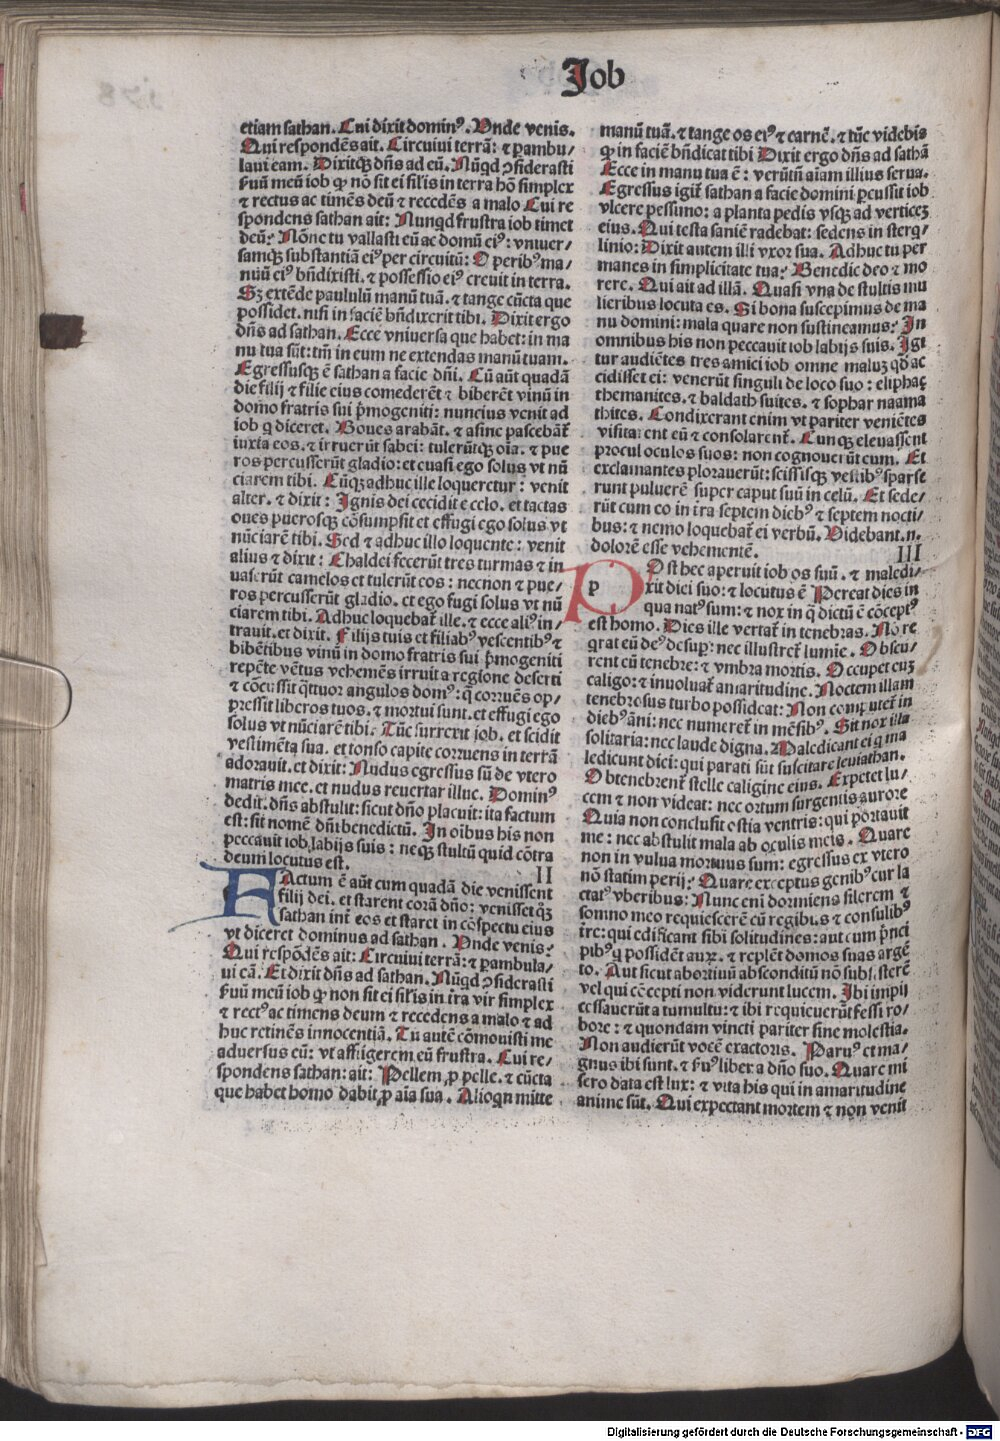 Job
etiam sathan. Cui dixit domin⁹. Vnde venis.
Qui respondēs ait. Circuiui terrā: ⁊ p̄ambu/
laui eam. Dixitqꝫ dn̄s ad eū. Nūqd ꝯsiderasti
ẜuū meū iob ꝙ nō sit ei sil̄is in terra hō simplex
⁊ rectus ac timēs deū ⁊ recedēs a malo Cui re
spondens sathan ait: Nunqd frustra iob timet
deū? Nōne tu vallasti eū ac domū ei⁹: vniuer/
samqꝫ substantiā ei⁹ per circuitū: O perib⁹ ma/
nuū ei⁹ bn̄dixisti. ⁊ possessio ei⁹ creuit in terra.
Sꝫ extēde paululū manū tuā. ⁊ tange cūcta que
possidet. nisi in faciē bn̄dixerit tibi. Dixit ergo
dn̄s ad sathan. Ecce vniuersa que habet: in ma
nu tua sūt: tm̄ in eum ne extendas manū tuam.
Egressusqꝫ ē sathan a facie dn̄i. Cū aūt quadā
die filij ⁊ filie eius comederēt ⁊ biberēt vinū in
domo fratris sui p̄mogeniti: nuncius venit ad
iob q diceret. Boues arabāt. ⁊ asine pascebāt̄
iuxta eos. ⁊ irruerūt sabei: tulerūtqꝫ oīa. ⁊ pue
ros percusserūt gladio: et euasi ego solus vt nū
ciarem tibi. Cūqꝫ adhuc ille loqueretur: venit
alter. ⁊ dixit: Ignis dei cecidit e celo. et tactas
oues puerosqꝫ cōsumpsit et effugi ego solus vt
nūciarē tibi. Sed ⁊ adhuc illo loquente: venit
alius ⁊ dixit: Chaldei fecerūt tres turmas ⁊ in
uaserūt camelos et tulerūt eos: necnon ⁊ pue/
ros percusserūt gladio. et ego fugi solus vt nū
ciarem tibi. Adhuc loquebat̄ ille. ⁊ ecce ali⁹ in/
trauit. et dixit. Filijs tuis et filiab⁹ vescentib⁹ ⁊
bibētibus vinū in domo fratris sui p̄mogeniti
repēte vētus vehemēs irruit a regione deserti
⁊ cōcussit q̄ttuor angulos dom⁹: q̄ corruēs op/
pressit liberos tuos. ⁊ mortui sunt. et effugi ego
solus vt nūciarē tibi. Tūc surrexit iob. et scidit
vestimēta sua. et tonso capite corruens in terrā
adorauit. et dixit: Nudus egressus sū de vtero
matris mee. et nudus reuertar illuc. Domin⁹
dedit. dn̄s abstulit: sicut dn̄o placuit: ita factum
est: sit nomē dn̄i benedictū. In oībus his non
peccauit iob labijs suis: neqꝫ stultū quid cōtra
deum locutus est.
II
FActum ē aūt cum quadā die venissent
filij dei. et starent corā dn̄o: venisset qꝫ
sathan int̄ eos et staret in cōspectu eius
vt diceret dominus ad sathan. Vnde venis?
Qui respōdēs ait: Circuiui terrā: ⁊ p̄ambula/
ui eā. Et dixit dn̄s ad sathan. Nūqd ꝯsiderasti
ẜuū meū iob ꝙ non sit ei sil̄is in t̄ra vir simplex
⁊ rect⁹ ac timens deum ⁊ recedens a malo ⁊ ad
huc retinēs innocentiā. Tu autē cōmouisti me
aduersus eū: vt affligerem eū frustra. Cui re/
spondens sathan: ait: Pellem ꝓ pelle. ⁊ cūcta
que habet homo dabit ꝓ aīa sua. Alioqn mitte
manū tuā. ⁊ tange os ei⁹ ⁊ carnē. ⁊ tūc videbis
ꝙ in faciē bn̄dicat tibi Dixit ergo dn̄s ad sathā
Ecce in manu tua ē: verūtn̄ aīam illius serua.
Egressus igit̄ sathan a facie domini p̄cussit iob
vlcere pessimo: a planta pedis vsqꝫ ad verticeꝫ
eius. Qui testa saniē radebat: sedens in sterq/
linio: Dixit autem illi vxor sua. Adhuc tu per
manes in simplicitate tua? Benedic deo ⁊ mo
rere. Qui ait ad illā. Quasi vna de stultis mu
lieribus locuta es. Si bona suscepimus de ma
nu domini: mala quare non sustineamus? In
omnibus his non peccauit iob labijs suis. Igi
tur audiētes tres amici iob omne maluꝫ qd̄ ac
cidisset ei: venerūt singuli de loco suo: eliphaꝫ
themanites. ⁊ baldath suites. ⁊ sophar naama
thites. Condixerant enim vt pariter veniētes
visitarent eū ⁊ consolarent̄. Cunqꝫ eleuassent
procul oculos suos: non cognouerūt eum. Et
exclamantes plorauerūt: scissisqꝫ vestib⁹ sparse
runt puluerē super caput suū in celū. Et sede/
rūt cum eo in t̄ra septem dieb⁹ ⁊ septem nocti/
bus: ⁊ nemo loquebat̄ ei verbū. Videbant .n.
dolorē esse vehementē.
III
p
POst hec aperuit iob os suū. ⁊ maledi/
xit diei suo: ⁊ locutus ē Pereat dies in
qua nat⁹ sum: ⁊ nox in q̄ dictū ē cōcept⁹
est homo. Dies ille vertat̄ in tenebras. Nō re
qrat eū de⁹ desup̄: nec illustret̄ lumīe. Obscu/
rent eū tenebre: ⁊ vmbra mortis. Occupet euꝫ
caligo: ⁊ inuoluat̄ amaritudine. Noctem illam
tenebrosus turbo possideat: Non computet̄ in
dieb⁹ āni: nec numeret̄ in mēsib⁹. Sit nox illa
solitaria: nec laude digna. Maledicant ei q ma
ledicunt diei: qui parati sūt suscitare leuiathan.
Obtenebrent̄ stelle caligine eius. Expetet lu/
cem ⁊ non videat: nec ortum surgentis aurore
Quia non conclusit ostia ventris: qui portauit
me: nec abstulit mala ab oculis meis. Quare
non in vulua mortuus sum: egressus ex vtero
nō statim perij? Quare exceptus genib⁹ cur la
ctat⁹ vberibus: Nunc eni dormiens silerem ⁊
somno meo requiescerē cū regibus ⁊ consulib⁹
t̄re: qui edificant sibi solitudines: aut cum p̄nci
pib⁹ q possidēt auꝝ. ⁊ replēt domos suas argē
to. Aut sicut abortiuū absconditū nō subsisterē
vel qui cōcepti non viderunt lucem. Ibi impij
cessauerūt a tumultu: ⁊ ibi requieuerūt fessi ro/
bore: ⁊ quondam vincti pariter sine molestia.
Non audierūt vocē exactoris. Paru⁹ et ma/
gnus ibi sunt. ⁊ ẜu⁹ liber a dn̄o suo. Quare mi
sero data est lux: ⁊ vita his qui in amaritudine
anime sūt. Qui expectant mortem ⁊ non venit
Digitalisierung gefördert durch die Deutsche Forschungsgemeinschaft - DFG